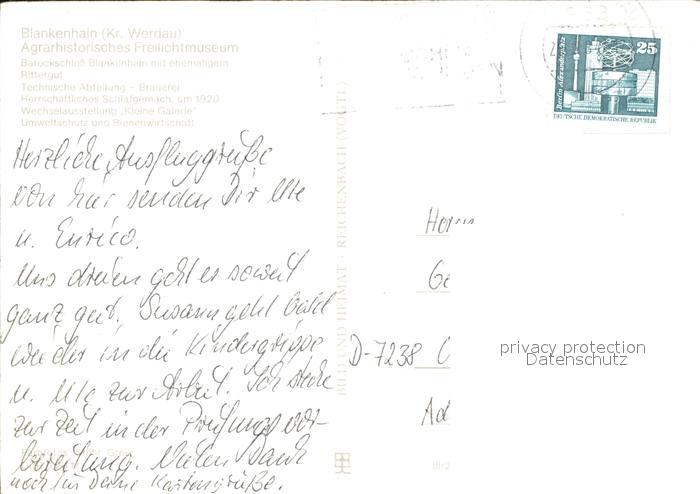 Blankenhain (Kr. Werdau)
Agrarhistorisches Freilichtmuseum
Barockschloß Blankenhain mit ehemaligem
Rittergut
Technische Abteilung – Brauerei
Herrschaftliches Schlafgemach, um 1920
Wechselausstellung „Kleine Galerie"
Umweltschutz und Bienenwirtschaft
Herzliche Ausflugsgrüße
von hier senden Dir Ute
u. Enrico.
Uns dreien geht es soweit
ganz gut. Susann geht bald
wieder in die Kindergrippe
u. Ute zur Arbeit. Ich stecke
zur Zeit in der Prüfungsvor-
bereitung. Vielen Dank
noch für Deine Kartengrüße.
BILD UND HEIMAT · REICHENBACH (VOGTL)
25
Berlin, Alexanderplatz
DEUTSCHE DEMOKRATISCHE REPUBLIK
D-7238
privacy protection
Datenschutz